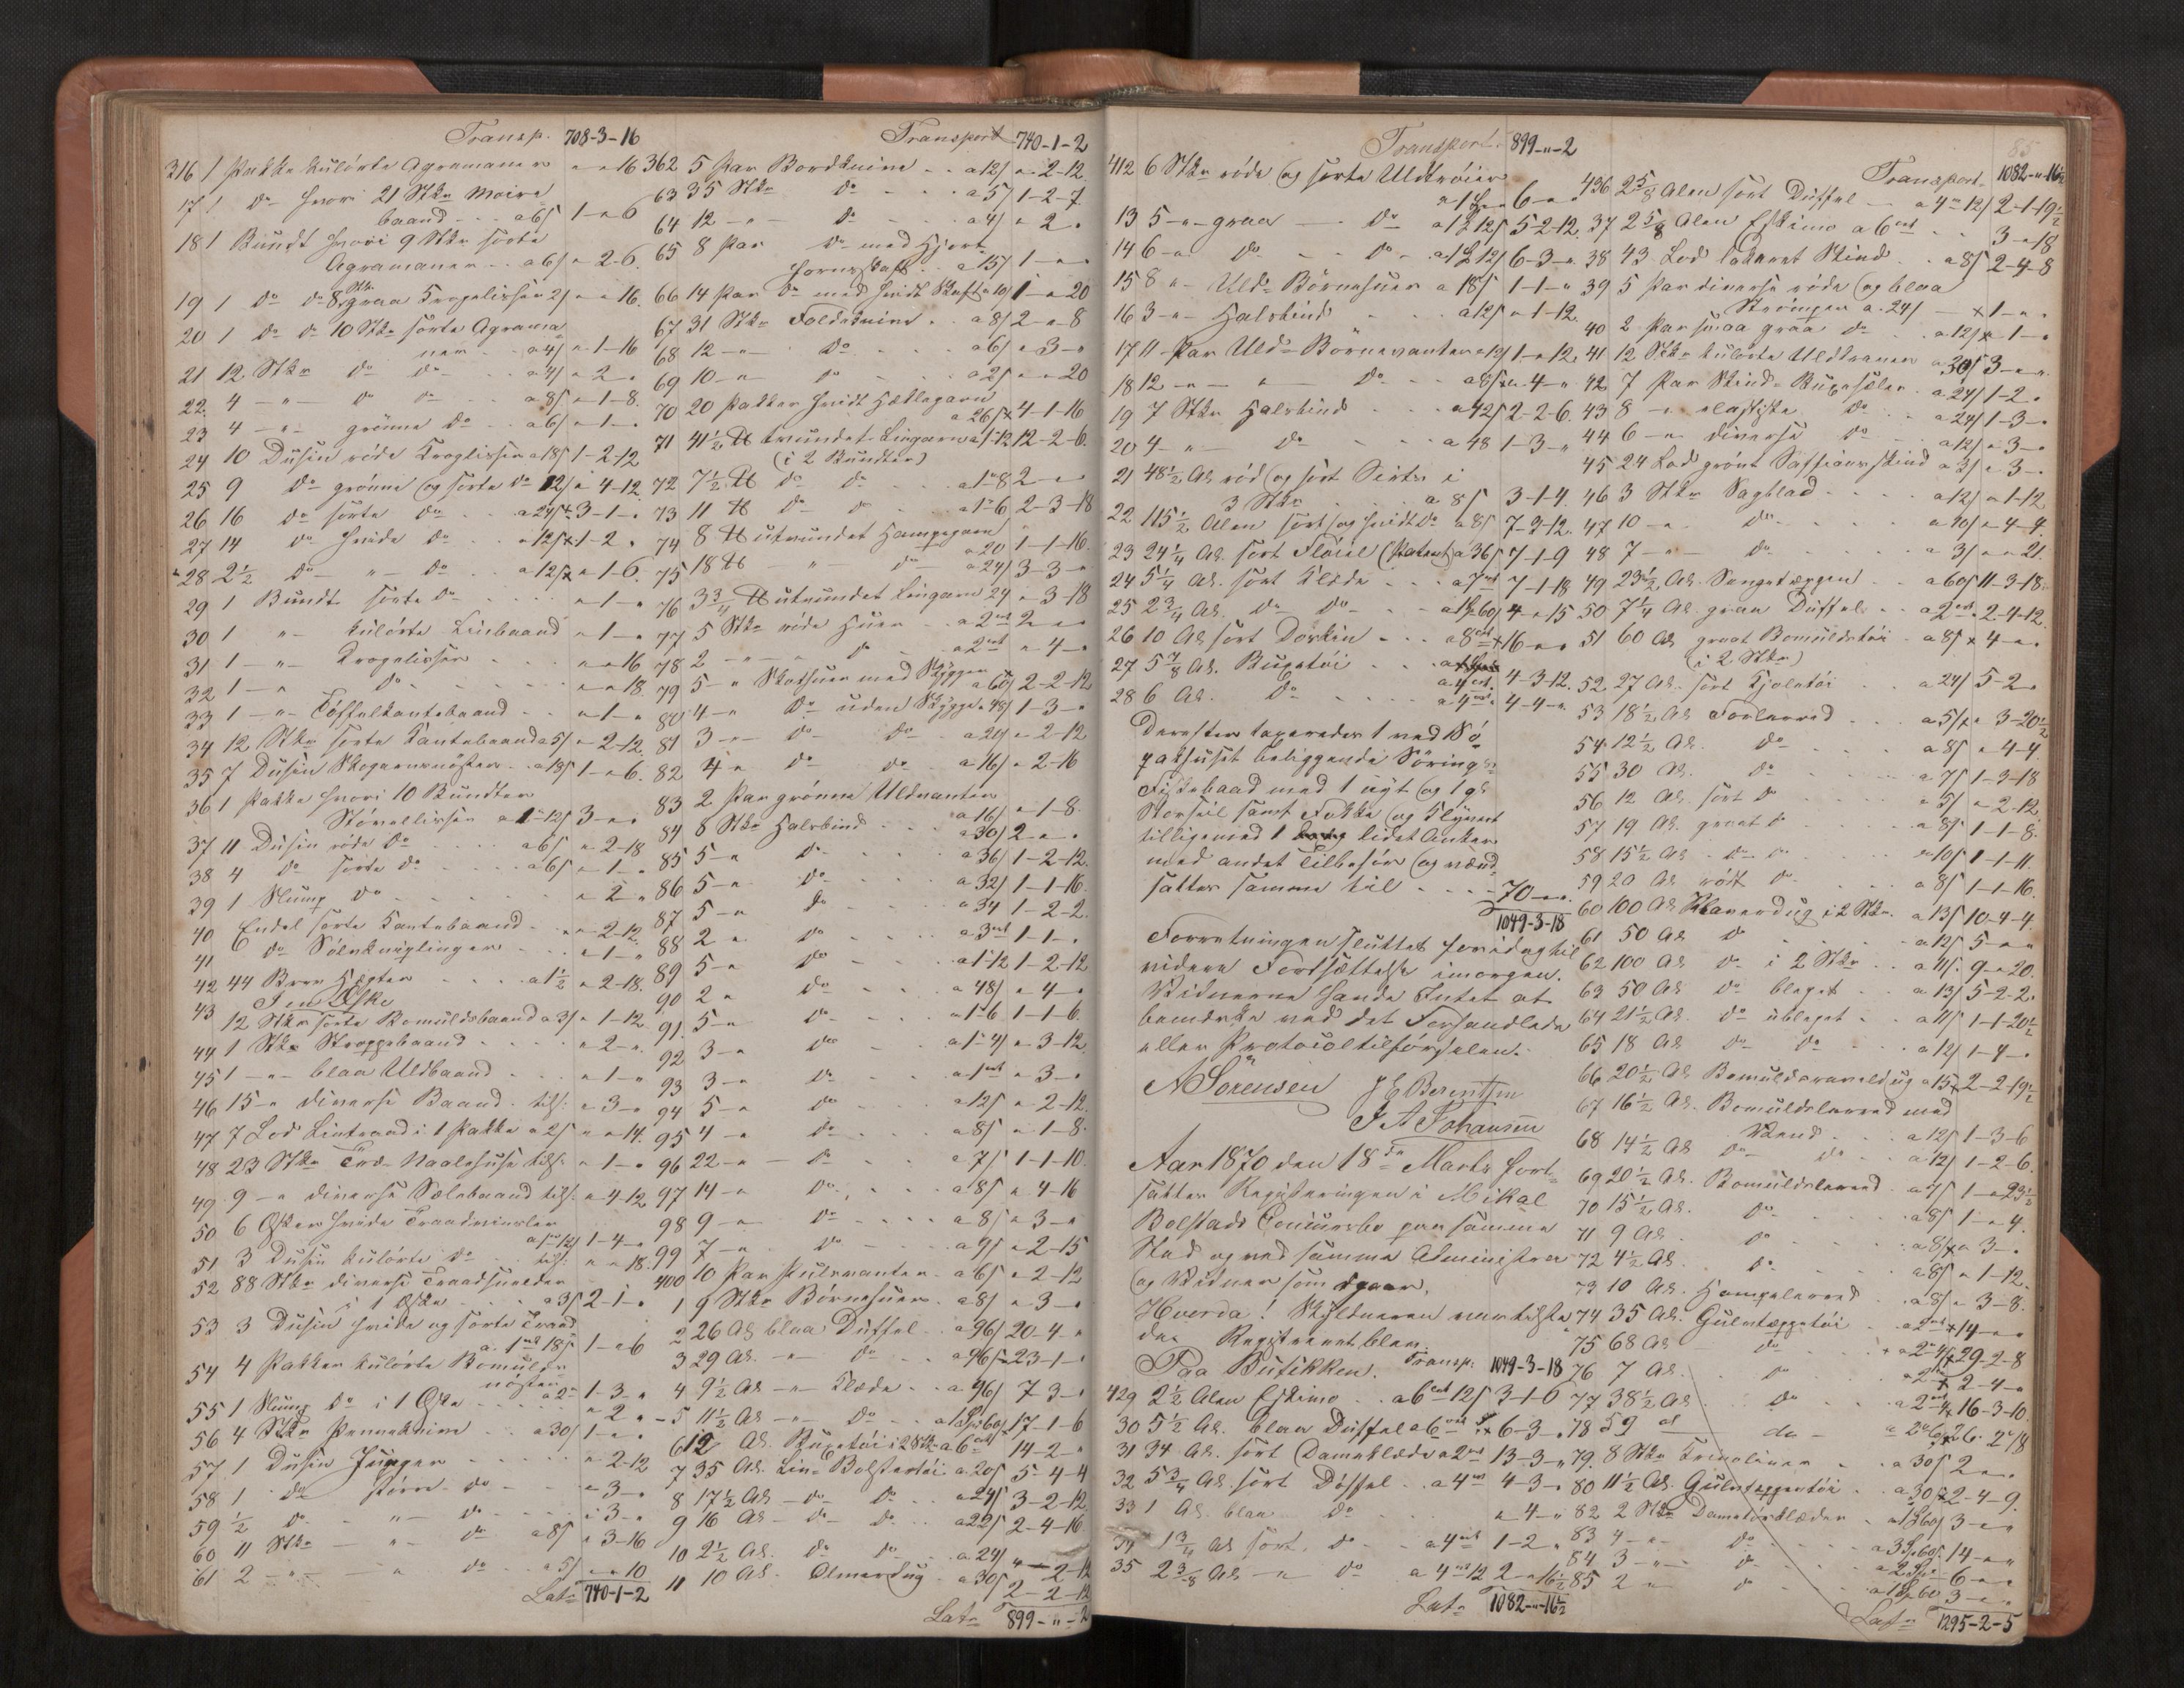 Transp. 708-3-16
316 1 Pakke kulörte Agramaner " - " 16
17 1 do hvori 21 Stkr Moire
baand a 6 1 - " 6
18 1 Bundt hvori 9 Stkr sorte
Agramaner a 6 " 2-6
19 1 do do 8 Stkr graa Troglisser 2 " - " 16
20 1 do do 10 Stkr sorte Agrama
ner a 4 " 1-16
21 12 Stkr do do a 4 " 2 "
22 4 - " - do do a 8 " 1-8
23 4 - " - grönne do a 6 " 1 - "
24 10 Dusin röde Troglisser a 18 1-2-12
25 9 do grönne og sorte do 12 " 4-12
26 16 do sorte do a 24 3-1 - "
27 14 do hvide do a 12 1-2 "
28 2½ do - " - do a 12 " 1-6
29 1 Bundt sorte do " - 1 - "
30 1 " kulörte Linbaand " 1 - "
31 1 - " - Troglisser " - " 16
32 1 - " do " - " 18
33 1 - " - Töffelkantebaand " 1 - "
34 12 Stkr sorte Kantebaand a 5 " 2-12
35 7 Dusin Skogarnsnöster a 18 1 - " 6
36 1 Pakke hvori 10 Bundter
Stövellisser a 1-12 3 - "
37 11 Dusin röde do a 6 " 2-18
38 4 do sorte do a 6 " 1 - "
39 1 Slump do " 2 "
40 Endel sorte Kantebaand " 2-12
41 6 do Sölvkniplinger " 1 - "
42 44 Brev Hegter a 1½ " 2-18
I en Æske
43 12 Stkr sorte Bomuldsbaand a 3 " 1-12
44 1 Stkr Stroppebaand " 2 - "
45 1 - " - blaa Uldbaand " 1 - "
46 15 - " diverse Baand tils. " 3 - "
47 7 Lod Lintraad i 1 Pakke a 2 " - " 14
48 23 Stkr Træ-Naalehuse tils. " 1 - "
49 9 - " diverse Sælebaand tils. " 4-12
50 6 Æsker hvide Traadvinsler
1-4 - "
51 3 Dusin kulörte do tils. " - " 18
52 88 Stkr diverse Traadsneller
i 1 Æske a 3 2-1 - "
53 3 Dusin hvide og sorte Traad
a 1 mk 18 1 - " 6
54 4 Pakker kulörte Bomulds
nöster a 2 1-3 - "
55 1 Slump do i 1 Æske " 2 "
56 4 Stkr Penneknive a 30 1 - "
57 1 Dusin Junger " 2-12
58 1 do större do " 3 - "
59 ½ do - " - do " 3 - "
60 11 Stkr - " - do a 8 " 3-16
61 2 - " - " do a 5 " - " 10
Lat. 740-1-2
Transport 740-1-2
362 5 Par Bordknive a 12 " 2-12
63 35 Stkr do a 5 1-2-7
64 12 - " - do a 4 " 2 "
65 8 Par do med Hjort
hornsskaft a 15 1 - "
66 14 Par do med hvidt Skaft a 10 1 - " 20
67 31 Stkr Foldeknive a 8 2 - " 8
68 12 - " - do a 6 " 3 - "
69 10 - " - do a 2 " - " 20
70 20 Pakker hvidt Heklegarn
a 26 4-1-16
71 41½ ℔ tvundet Lingarn a 1-12 12-2-6
(i 2 Bundter)
72 7½ ℔ do do a 1-8 2 - "
73 11 ℔ do do a 1-6 2-3-18
74 8 ℔ utvundet Hampegarn
a 20 1-1-16
75 18 ℔ - " - do a 24 3-3 - "
76 3¾ ℔ utvundet Lingarn 24 " 3-18
77 5 Stkr röde Huer a 2 mk 2 - "
78 2 - " - " do a 2 mk " 4 - "
79 5 - " Skothuer med Skygger a 60 2-2-12
80 4 - " do uden Skygge a 48 1-3 - "
81 3 - " do do a 24 " 2-12
82 4 " do do a 16 " 2-16
83 2 Par grönne Uldvanter
a 16 " 1-8
84 8 Stkr Halsbind a 30 2 - "
85 5 - " do a 36 1-2-12
86 5 - " do a 32 1-1-16
87 5 - " do a 34 1-2-2
88 2 " do a 3 mk 1-1 - "
89 5 - " do a 1-12 1-2-12
90 2 " do a 48 " 4 - "
91 5 - " do a 1-6 1-1-6
92 3 - " do a 1-4 " 3-12
93 3 - " do a 1 mk " 3 - "
94 5 - " do a 12 " 2-12
95 4 - " do a 8 " 1-8
96 22 - " - do a 7 1-1-10
97 14 - " do a 8 " 4-16
98 9 - " do a 8 " 3 - "
99 7 - " do a 9 " 2-15
400 10 Par Pulsvanter a 6 " 2-12
1 9 Stkr Börnehuer a 8 " 3 - "
2 26 Al. blaa Düffel a 96 20-4 "
3 29 Al. - " do a 96 23-1 - "
4 9½ Al. - " Klæde a 96 7-3 - "
5 11½ Al. - " - do 17-1-6
6 12 Al. Buxetöi i 2 Stk. a 6 mk 14-2 - "
7 35 Al. Lin-Bolstertöi a 20 5-4-4
8 17½ Al. - do - do a 24 3-2-12
9 16 Al. - do - do a 22 2-4-16
10 2½ Al. do do a 24 " - 2-12
11 10 Al. Olmerdug a 30 2-2-12
Lat. 899 - " - 2
Transport 899 - " - 2
412 6 Stkr röde og sorte Uldtröier
6 - " "
13 5 - " - graa - do 5-2-12
14 6 - " do - do 6-3 - "
15 8 " - Uld-Börnehuer a 18 1-1 - "
16 3 - " - Halsbind a 12 " 1-12
17 11 Par Uld-Börnevanter a 12 1 - " 12
18 12 - " - " - do a 8 " 4 - "
19 7 Stkr Halsbind a 42 2-2-6
20 4 - " - do a 48 1-3 - "
21 48½ Al. röd og sort Sirts i
3 Stkr a 8 3-1-4
22 115½ Alen sort og hvidt do a 8 7-3-12
23 24¼ Al. sort Flöiel (Patent) a 36 7-1-9
24 5¼ Al. sort Klæde a 7 mk 7-1-18
25 2¾ Al. do do 4 " 15
26 10 Al. sort Doskin a 8 mk 16 - " "
27 5⅞ Al. Buxetöi a 4 mk 4-3-12
28 6 Al. do a 4 mk 4-4 - "
Derefter taxeredes 1 ved Sö
pakhuset beliggende Söring
Fiskebaad med 1 nyt og 1 gl.
Storseil samt Fokke og Klyver
tilligemed 1 lidet Anker
med andet Tilbehör og værd
sattes samme til 70 - " "
1049-3-18
Forretningen sluttet foridag til
videre Fortsættelse imorgen.
Vidnerne havde Intet at
bemærke ved det Forhandlede
eller Protocoltilförselen.
A Sörensen J E Berentsen
J A Johansen
Aar 1870 den 18de Marts fort
sattes Registeringen i Mikal
Bolstads Concursbo paa samme
Sted og ved samme Administra
og Vidner som igaar.
Hvorda! Skyldneren var tilste
de. Registreret blev
Paa Butikken. Transp: 1049-3-18
429 2½ Alen Eskimo a 6 mk 12 3-1-6
30 5½ Al. blaa Duffel a 6 mk 6-3 - "
31 34 Al. sort Dameklæde a 2 mk 13-3 - "
32 5¾ Al. sort Döffel a 4 mk 4-3 - "
33 1 Al. blaa do " 4 - "
34 1¾ Al. sort do a 4 mk 1-2 "
35 2⅜ Al. - " do a 4 mk 12 2 - " 16½
Lat. 1082 - " - 16½
85
Transport 1082 - " - 16½
436 2⅝ Alen sort Duffel a 4 mk 12 2-1-19½
37 2⅝ Alen Eskimo a 6 mk 3 - " 18
38 43 Lod lakeret Skind a 8 2-4-8
39 5 Par diverse röde og blaa
Strömper a 24 1 - "
40 2 Par smaa graa do a 12 1 - "
41 12 Stkr kulörte Uldtraner a 30 3 - " "
42 7 Par Skind-Buxesæler a 24 1-2 "
43 8 - " elastiske do a 24 1-3 - "
44 6 - " diverse do a 12 " 3 - "
45 24 Lod grönt Saffiansskind a 3 " 3 - "
46 3 Stkr Sagblad a 12 " 1-12
47 10 - " do a 10 " 4-4
48 7 - " - do a 3 " - " 21
49 23½ Al. Sengetæppen a 60 11-3-18
50 7¼ Al. graa Duffel a 2 mk 2-4-12
51 60 Al. graat Bomuldstöi a 8 4 - "
(i 2 Stkr)
52 27 Al. sort Kjoletöi a 24 5-2 "
53 18½ Al. Forlerred a 5 " 3-20½
54 12½ Al. do a 8 " 4-4
55 30 Al. do a 7 1-3-18
56 12 Al. sort do a 5 " 2-12
57 19 Al. graat do a 8 1-1-8
58 15½ Al. do do a 10 1-1-11
59 20 Al. rödt do a 8 1-1-16
60 100 Al. Klaverdug i 2 Stkr. a 13 10-4-4
61 50 Al. do a 12 5 - " "
62 100 Al. do i 2 Stkr a 11 9 - " 20
63 50 Al. do bleget a 13 5-2-2
64 21½ Al. do ubleget a 11 1-1-20½
65 18 Al. do do a 12 1-4 - "
66 20½ Al. Bomuldsraveldug a 15 2-2-19½
67 16½ Al. Bomuldslerred med
Rand a 12 1-3-6
68 14½ Al. do do a 12 1-2-6
69 20½ Al. Bomuldslerred a 7 1 - " 23½
70 15½ Al. do a 8 1 - " 4
71 9 Al. do a 8 " 3 - "
72 4½ Al. do a 8 " 1-12
73 10 Al. Hampelerred a 8 " 3-8
74 35 Al. Gulvtæppetöi a 2 mk 14 - "
75 68 Al. do 29-2-8
76 7 Al. do a 2 mk 2-4 - "
77 38½ Al. do 16-3-10
78 59 al do 26-2-18
79 8 Stkr Krinoliner a 30 2 - "
80 11½ Al. Gulvtæppetöi a 30 2-4-9
82 2 Stkr Dametörklæder 3 - " "
83 4 - " - do 14 - " "
84 3 - " - do 6 - " "
85 2 - " do 3 - " "
Lat. 1295-2-5